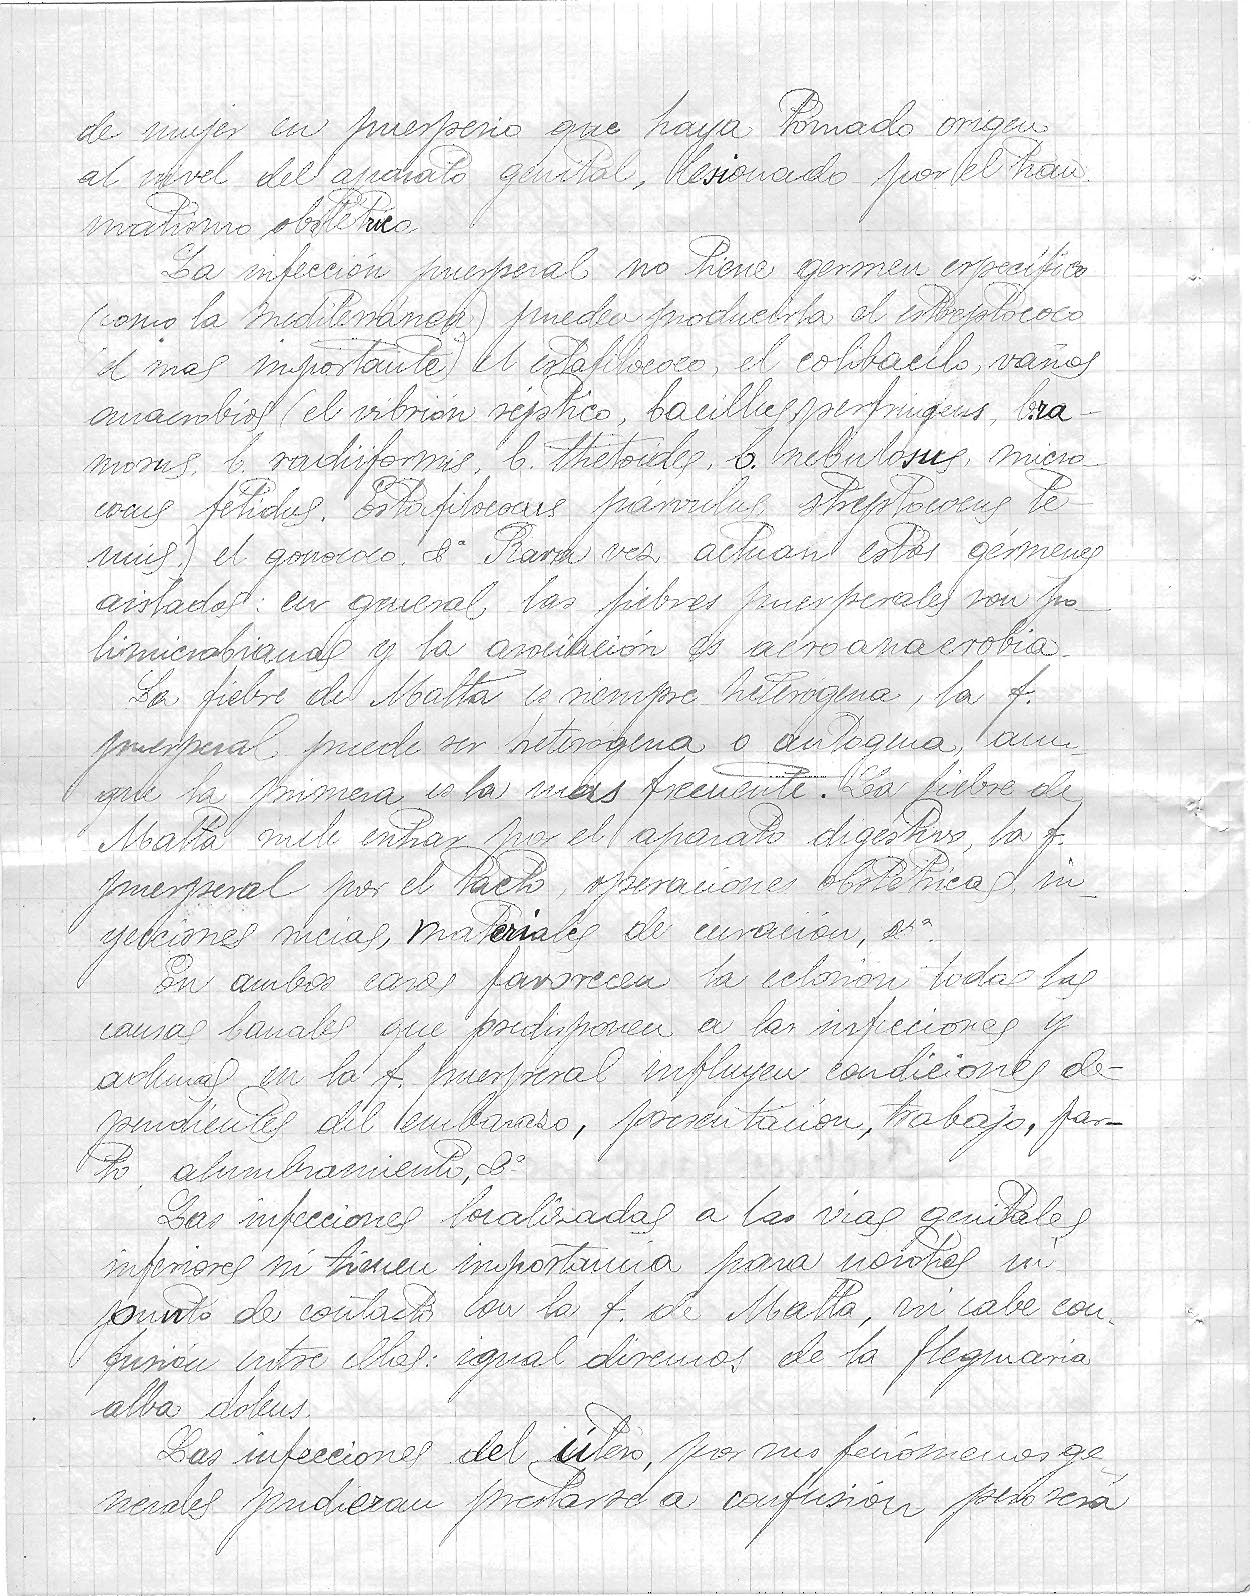 de mujer en puerperio que haya tomado origen
al nivel del aparato genital, lesionado por el trau
matismo obstétrico
La infección puerperal no tiene germen específico
(como la mediterránea) pueden producirla el estreptococo
(el mas importante) el estafilococo, el colibacilo, varios
anaerobios (el vibrión séptico, bacillus perfringens, b. ra-
mosus, b. radiiformis, b. thetoides, b. nebulosus, micro-
cocus fetidus, Estafilococus párvulus, streptococus te-
nuis) el gonococo, &ª Rara vez actuan estos gérmenes
aislados: en general, las fiebres puerperales son po-
limicrobianas y la asociación es aeroanaerobia.
La fiebre de Malta es siempre heterogena, la f.
puerperal puede ser héterogena o autogena, aun-
que la primera es la mas frecuente. La fiebre de
Malta suele entrar por el aparato digestivo, la f.
puerperal por el tacto, operaciones obstétricas, in-
yecciones sucias, materiales de curación, &ª.
En ambos casos favorecen la eclosión todas las
causas banales que predisponen a las infecciones y
ademas en la f. puerperal influyen condiciones de-
pendientes del embarazo, presentación, trabajo, par-
to, alumbramiento, &ª
Las infecciones localizadas a las vias genitales
inferiores ni tienen importancia para nosotros ni
punto de contacto con la f. de Malta, ni cabe con-
fusion entre ellas: igual diremos de la flegmasia
alba dolens.
Las infecciones del útero, por sus fenómenos ge-
nerales pudieran prestarse a confusión pero será